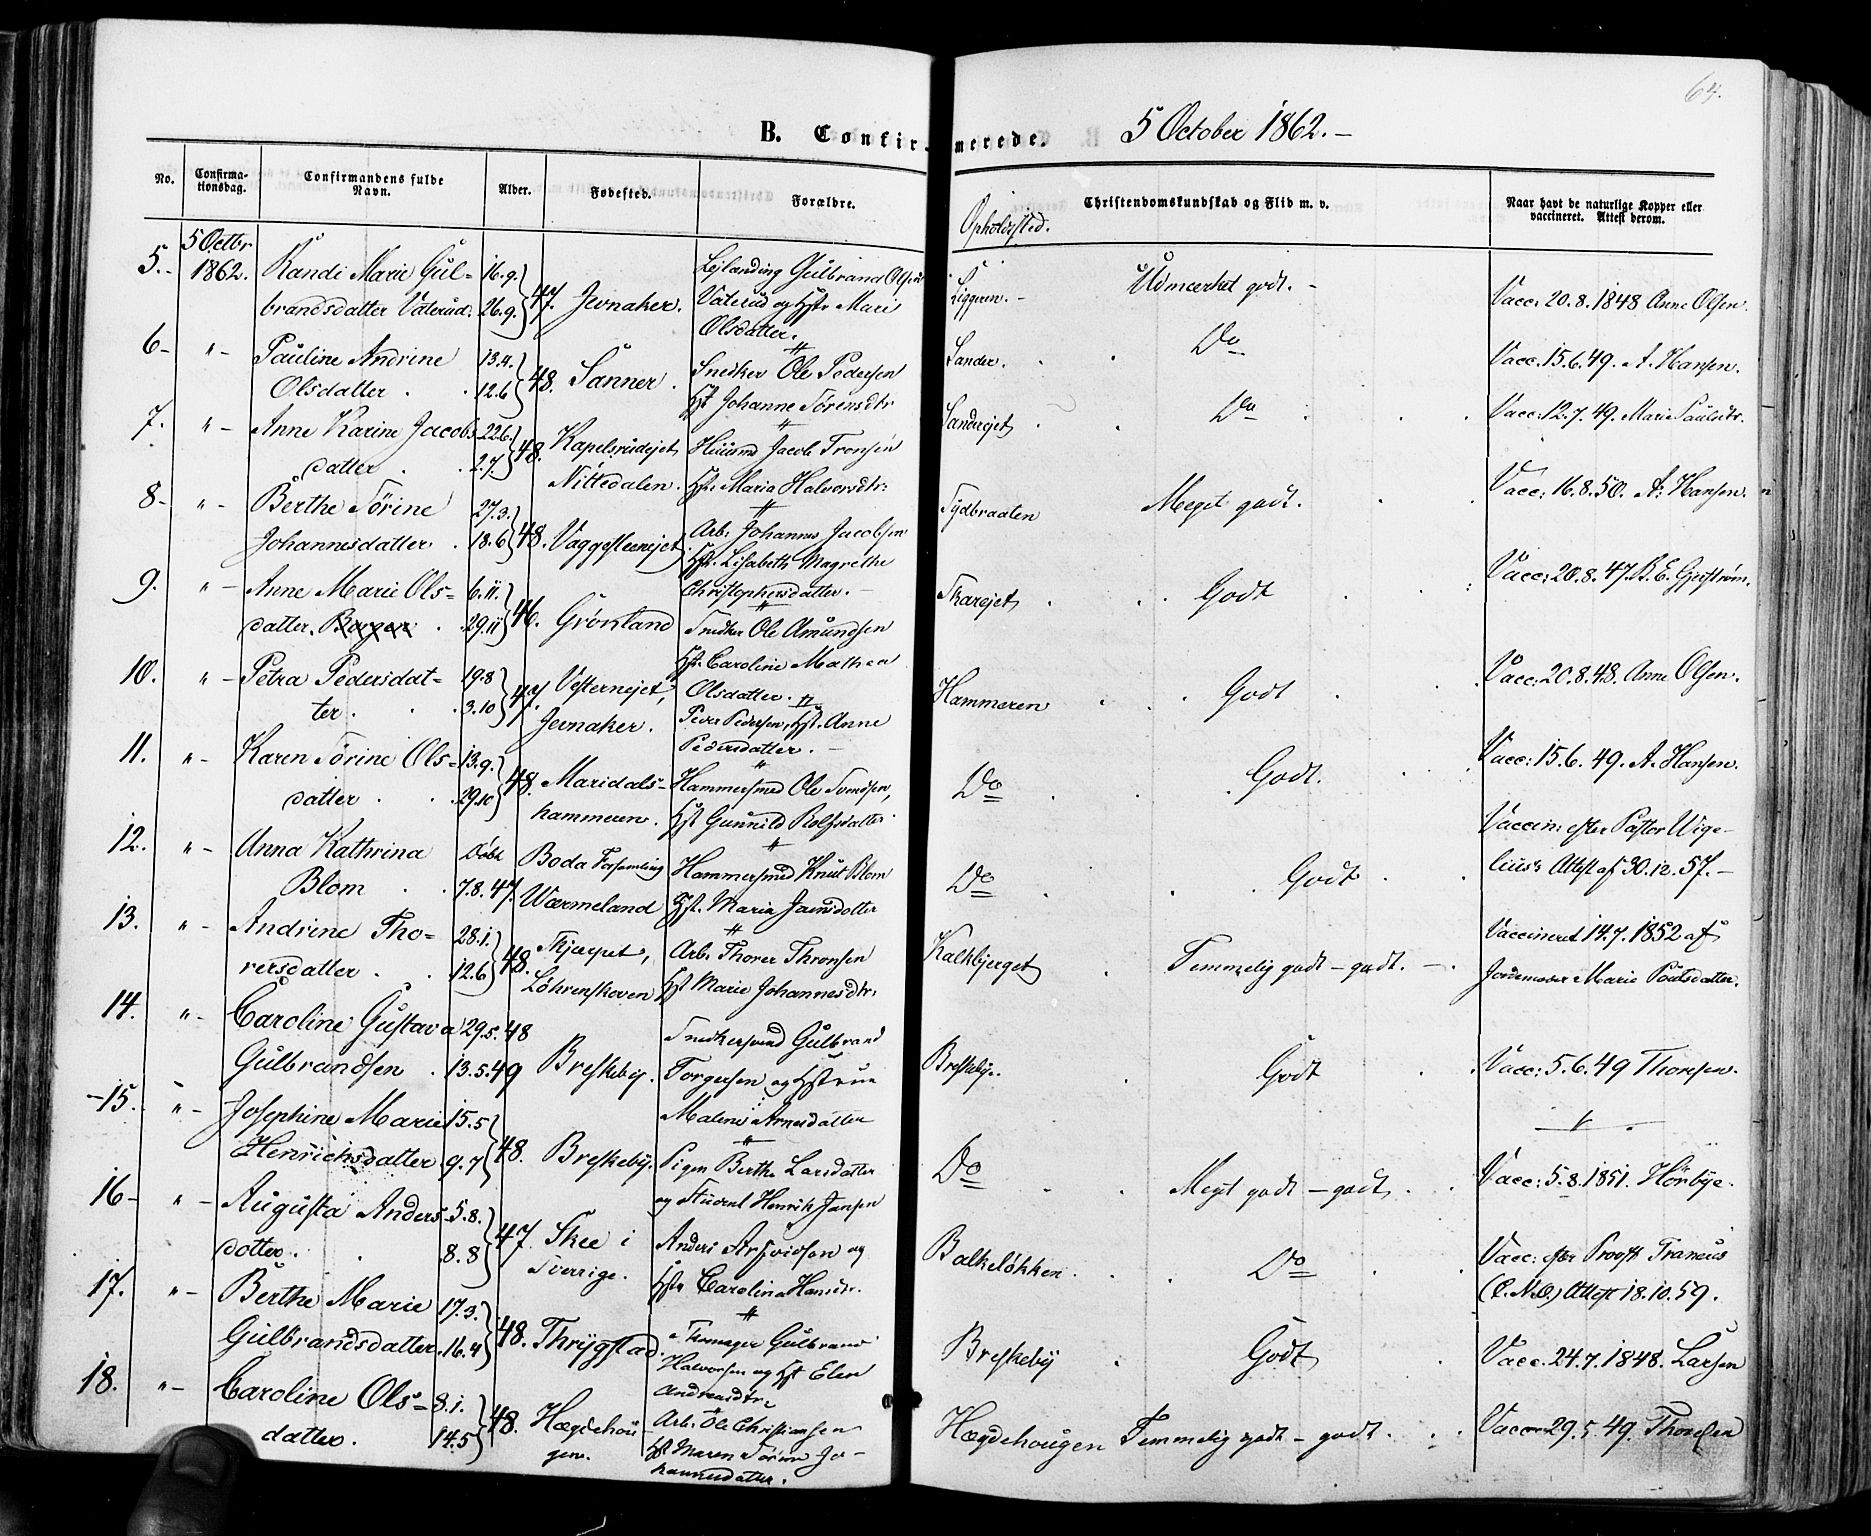 64.
B. Confirmerede. 5 October 1862. –
No. Confirma-tionsdag. Confirmandens fulde Navn. Alder. Fødested. Forældre. Opholdssted. Christendomskundskab og Flid m. v. Naar havt de naturlige Kopper eller vaccineret. Attest derom.
5. 5 Octbr 1862. Randi Marie Gul-
brandsdatter Vaterud. 16.9. 26.9. 47. Jevnaker.
Lejlænding Gulbrand Olsen
Vaterud og Hstr Mari
Olsdatter.
Liggeren. – Udmærket godt. – Vacc: 20.8.1848 Anne Olsen.
6 – " – Pauline Andrine
Olsdatter. 13.4. 12.6 48. Sanner.
Snedker Ole Pedersen
Hst Johanne Sørensdtr
Sander. Do Vacc. 15.6.49. A. Hansen.
7. " – Anne Karine Jacobs
datter. 22.6. 2.7. 48. Kapelsrudejet
Nittedalen.
Huusmd Jacob Tronsen
Hstr. Maria Halvorsdtr:
Sanderejet Do Vacc: 12.7.49. Marie Paulsdtr.
8 – " – Berthe Sørine
Johannesdatter. 27.3. 18.6 48. Vaggesteenejet
Arb. Johannes Jacobsen
Hstr. Lisabeth Magrethe
Christophersdatter. –
Sydbraaten Meget godt. Vacc: 16.8.50. A: Hansen.
9. " – Anne Marie Ols-
datter. 6.11. 29.11 46. Grønland
Snedker Ole Amundsen
Hstr. Caroline Mathea
Olsdatter.
Skarejet Godt Vacc: 20.8.47. B. E. Gjerstrøm.
10. " – Petra Pedersdat-
ter. 19.8 3.10 47. Vesternejet,
Jevnaker.
Peder Pedersen, Hst. Anne
Pedersdatter. –
Hammeren Godt Vacc: 20.8.48. Anne Olsen.
11. " – Karen Sørine Ols-
datter 13.9. 29.10 48. Maridals-
hammeren.
Hammersmed Ole Svendsen,
Hst Gunnild Rolfsdatter
Do Godt. Vacc: 15.6.49. A. Hansen.
12. " – Anna Kathrina
Blom Døbt 7.8.47. Boda Forsamling
Wærmeland
Hammersmed Knut Blom
Hst. Maria Jansdotter
Do Godt Vaccin: efter Pastor Wige-
lius's Attest af 30.12.57. –
13. " – Andrine Tho-
rersdatter. 28.1. 12.6 48. Skjærpet,
Løhrenskoven
Arb. Thorer Thronsen
Hst Marie Johannesdtr.
Kalkbjerget Temmelig godt – godt. – Vaccineret 14.7.1852 af
Jordemoder Marie Poulsdatter.
14. " – Caroline Gustava 29.5.48
Gulbrandsen. 13.5.49 Breskeby.
Snedkersvend Gulbrand
Torgersen og Hstrue
Malene Arnesdatter
Breskeby. Godt Vacc: 5.6.49 Thoresen.
–15. " – Josephine Marie
Henrichsdatter 15.5 9.7 48. Breskeby.
Pigen Berthe Larsdatter
og Student Henrik Jansen
Do Meget godt – godt. Vacc: 5.8.1851. Hörbye.
16 – " – Augusta Anders-
dotter. 5.8. 8.8 47. Skee i
Sverrige.
Anders Arfvidsen og
Hstr Carolina Hansdtr.
Balkeløkken. Do Vacc: efter Provst Franeius
(C.N.O.) Attest 18.10.59.
17. " – Berthe Marie
Gulbrandsdatter. 17.3. 16.4 48. Thrygstad.
Gulbrand
Halvorsen og Hst Elen
Andreasdtr.
Breskeby Godt Vacc. 24.7.1848. Larsen
18. " – Caroline Ols-
datter. 8.1. 14.5 48. Hægdehou-
gen.
Arb. Ole Christiansen
Hst. Maren Sørine Jo-
hannesdatter.
Hægdehougen Temmelig godt – godt. Vacc 29.5.49. Thoresen